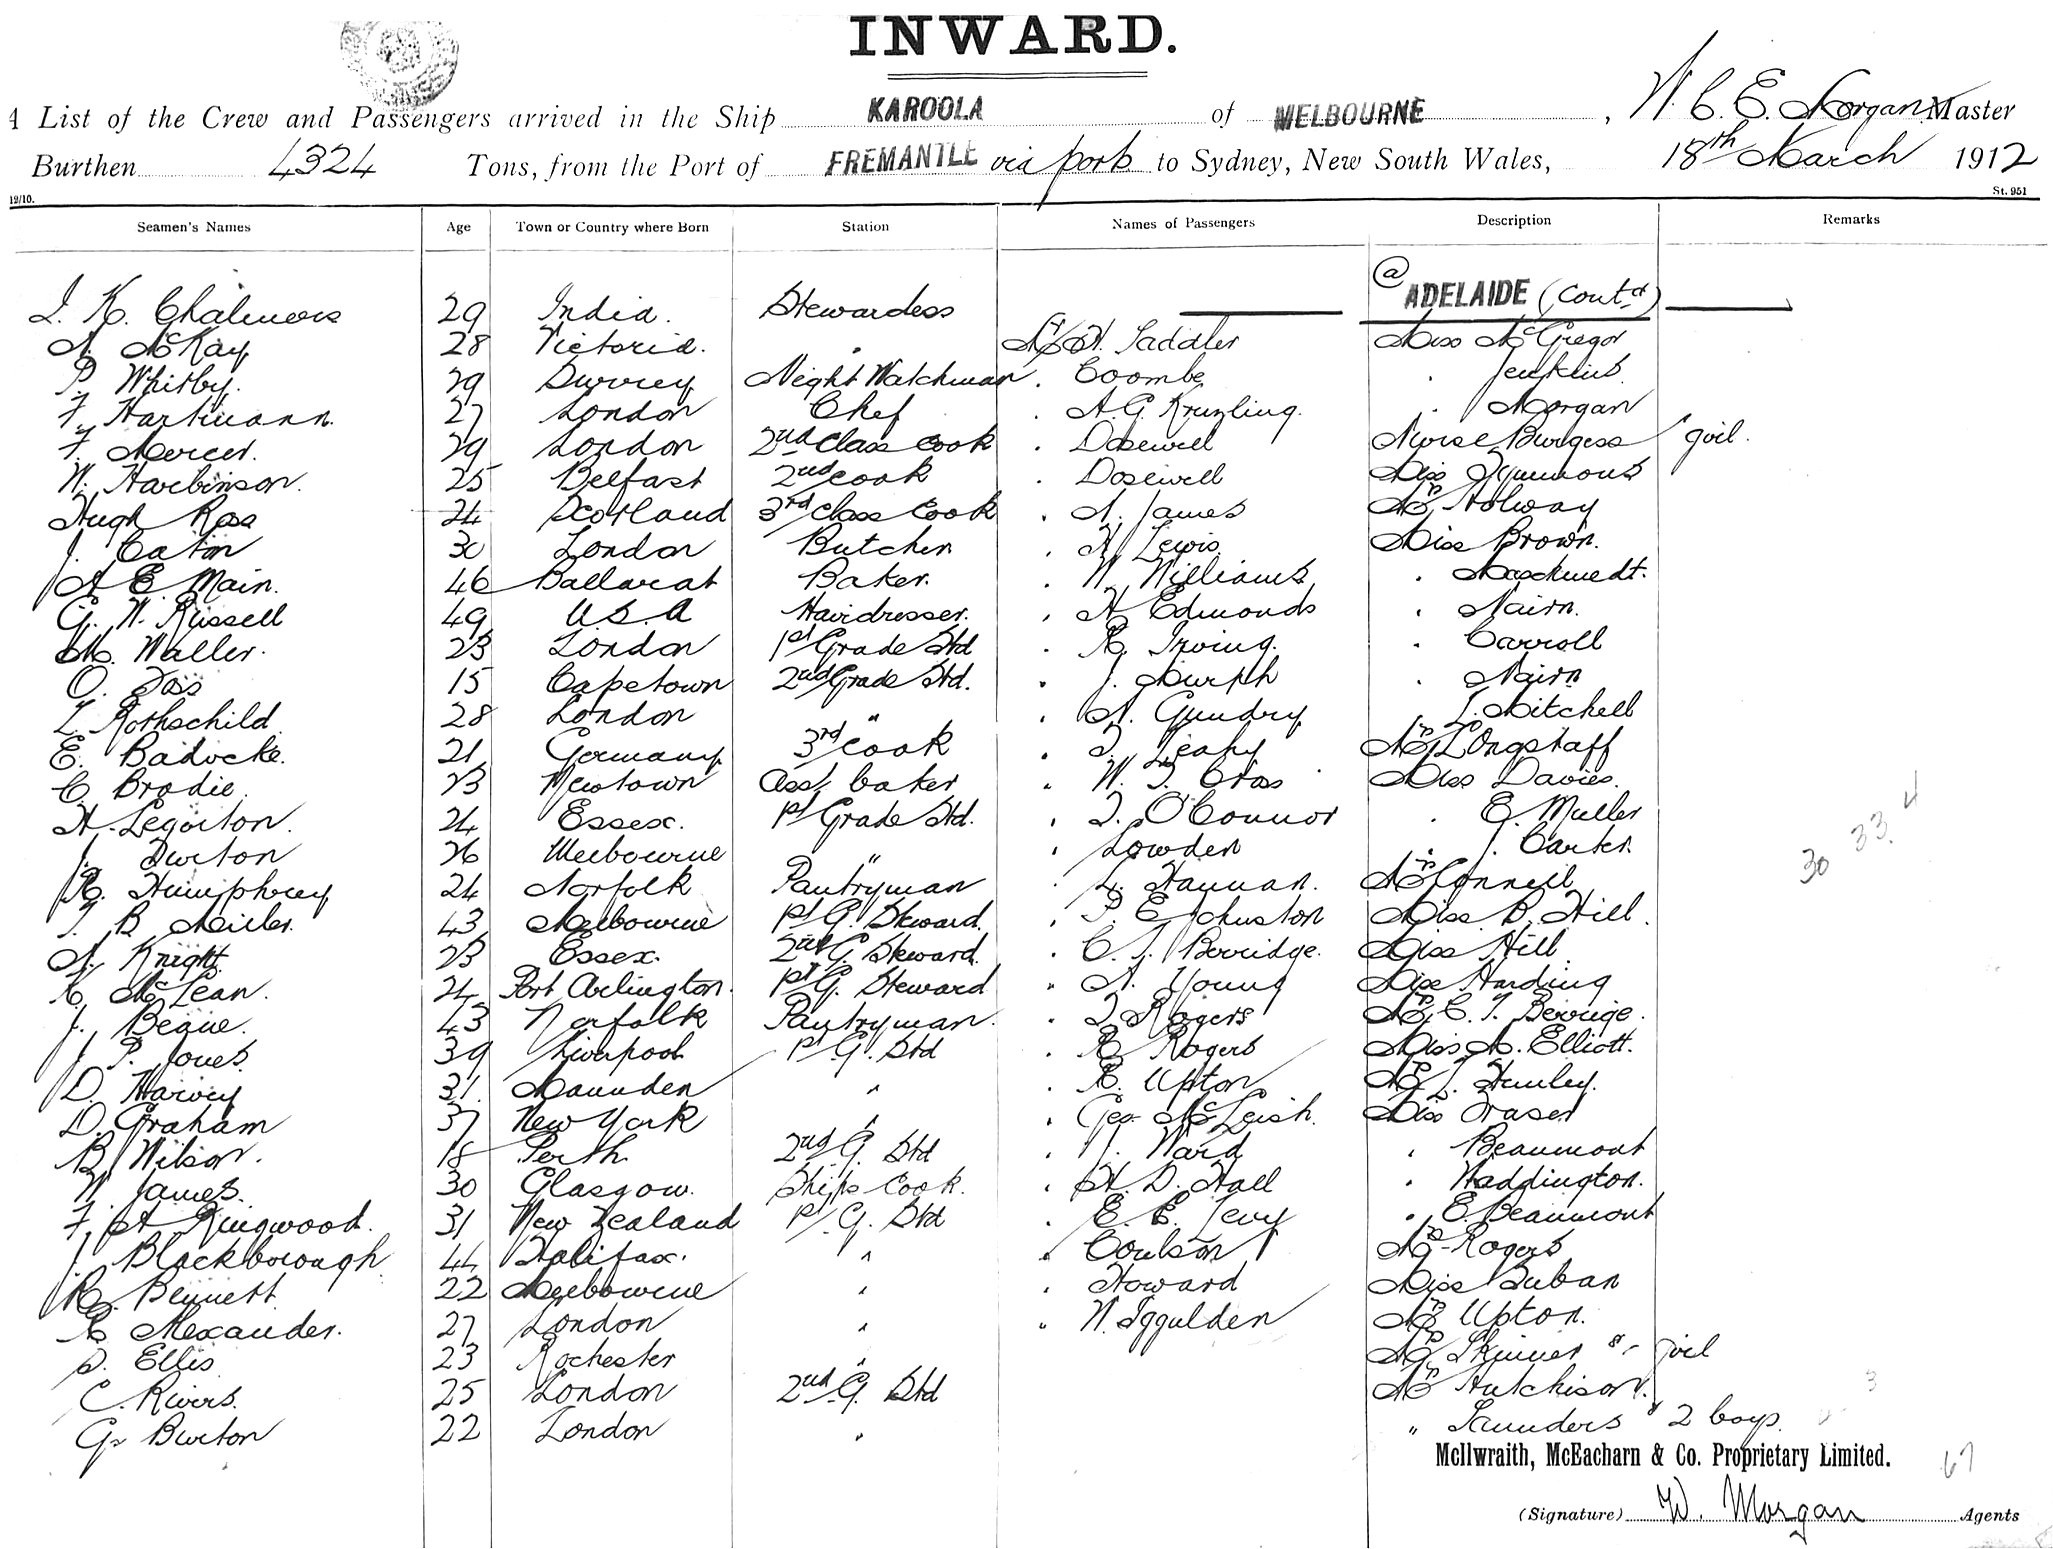 INWARD.
A List of the Crew and Passengers arrived in the Ship KAROOLA of MELBOURNE, W. C. E. Morgan Master
Burthen 4324 Tons, from the Port of FREMANTLE via ports to Sydney, New South Wales, 18th March 1912
12/10. St. 951
Seamen's Names Age Town or Country where Born Station Names of Passengers Description Remarks
@ ADELAIDE (Contd)
I. K. Chalmers 29 India. Stewardess
A. McKay 28 Victoria. " Mr H. Saddler Miss McGregor
P. Whitby. 29 Surrey Night Watchman " Coombe " Jenkins
F. Hartmann. 27 London Chef " A. G. Kruzling. " Morgan
F. Mercer. 29 London 2nd Class Cook " Dosewell Nurse Burgess girl.
W. Harbinson. 25 Belfast 2nd Cook " Dosewell Miss Symmons
Hugh Ross 24 Scotland 3rd Class Cook " A. James Mrs Holway
J. Eaton 30 London Butcher " A. Lewis Miss Brown.
A E Main. 46 Ballarat Baker. " W Williams " Maschmedt.
G. W. Russell 49 U.S.A Hairdresser. " H Edmonds " Nairn.
M. Waller. 23 London 1st Grade Std " R. Irving. " Carroll
O. Joss 15 Capetown 2nd Grade Std. " J. Murph " Nairn
L. Rothschild 28 London " " A. Gundry J. Mitchell
E. Badocke. 21 Germany 3rd Cook " T. Leahy Mrs Longstaff
C. Brodie. 23 Newtown Asst baker " W. T. Cross Miss Davies.
H. Legoiton. 24 Essex. 1st Grade Std. " T. O'Connor " E. Muller
J. Burton 26 Melbourne " " Lowden " J. Carter.
R. Humphrey 24 Norfolk Pantryman " L. Hannan. Mrs Connell
T. B. Miller. 43 Melbourne 1st G. Steward. " P. E Johnston Miss B. Hill.
A. Knight 23 Essex. 2nd G. Steward. " C. T. Berridge. Miss Hill
R. McLean. 24 Port Arlington. 1st G. Steward " A. Young Miss Harding
J. Beaue. 43 Norfolk Pantryman. " T Rogers Mrs C. T. Berrige.
J. P. Jones. 39 Liverpool 1st G. Std " R Rogers Miss A. Elliott.
D. Harvey 31. Maunden " " R. Upton Mrs J. Hunley.
D. Graham 37 New York " " Geo. McLeish. Miss Fraser
B. Wilson. 18 Perth 2nd G. Std " J. Ward " Beaumont
W. James. 30 Glasgow. Ships Cook. " H. D. Hall " Waddington.
F. A Ringwood. 31 New Zealand 1st G. Std " E. E. Levy " E. Beaumont
J. Blackborough 44 Halifax. " " Coulson Mrs Rogers
R. Bennett 22 Melbourne " " Howard Miss Luban
R Alexander. 27 London " " W. Iggulden Mrs Upton.
S. Ellis 23 Rochester " Mrs Skinner & girl
C. Rivers. 25 London 2nd G. Std Mrs Hutchison.
G. Burton 22 London " " Saunders & 2 boys.
30 33
3
67
McIlwraith, McEacharn & Co. Proprietary Limited.
(Signature) W. Morgan Agents